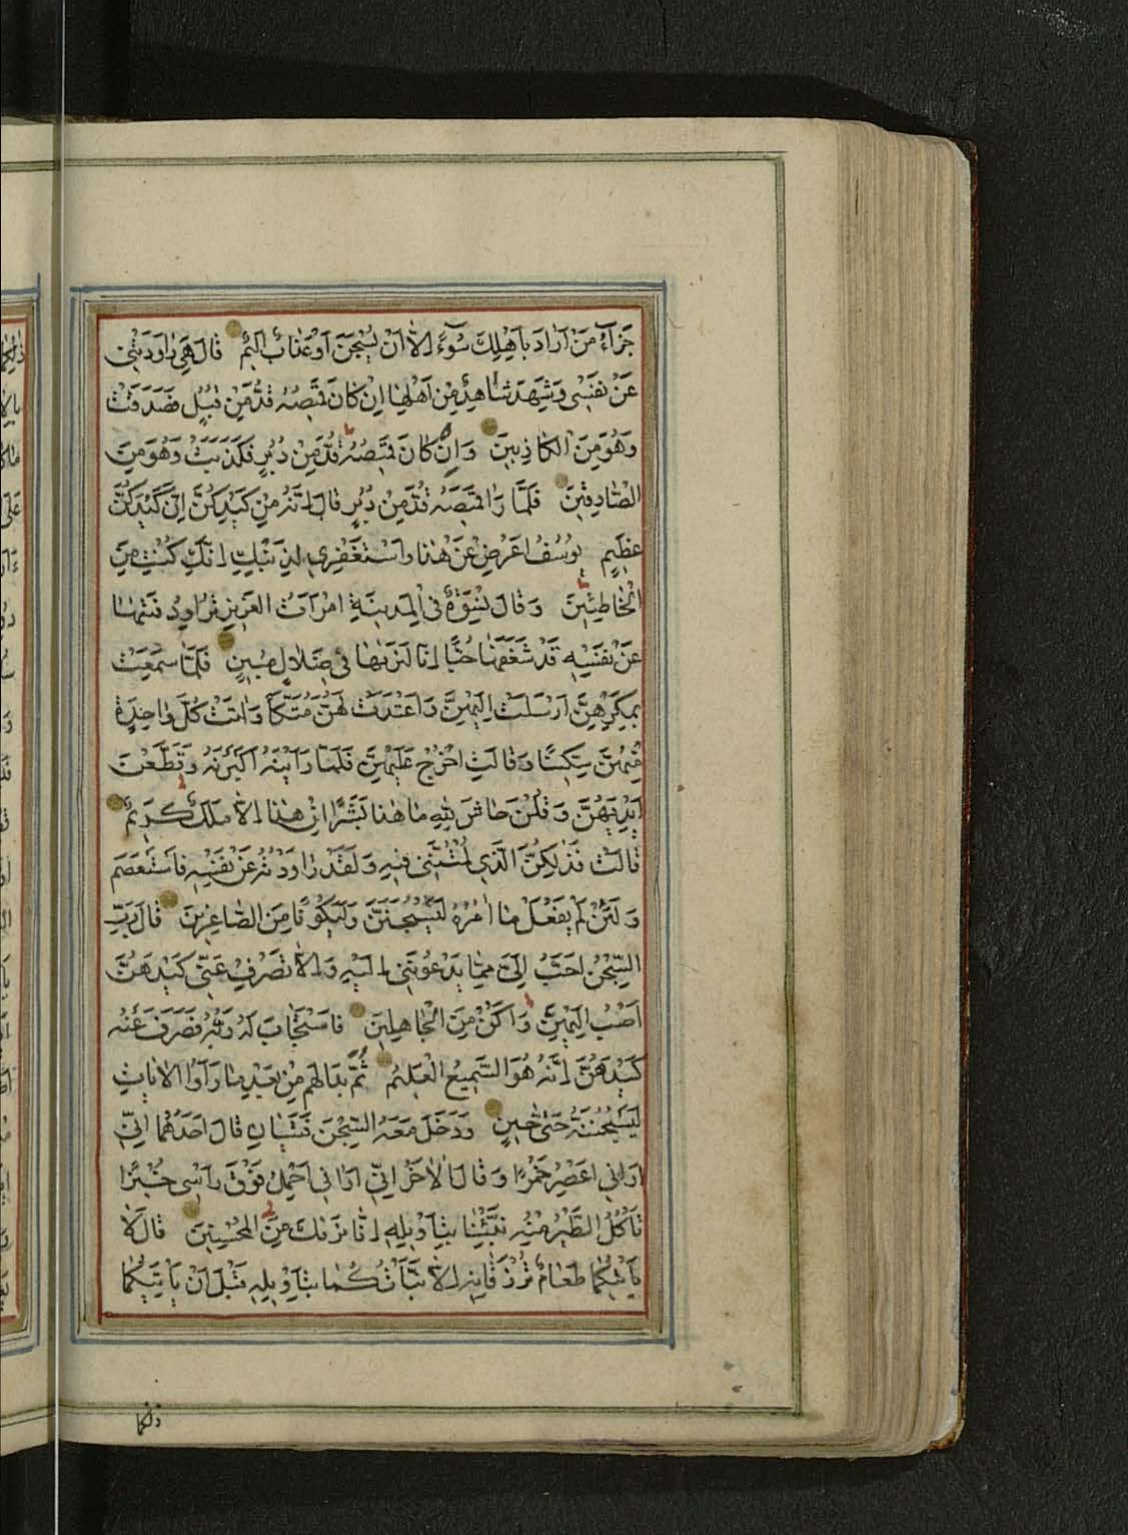 جَزَآءُ مَنْ اَرَادَ بِاَهْلِكَ سُوٓءًا اِلَّا اَنْ يُسْجَنَ اَوْ عَذَابٌ اَلِيمٌ قَالَ هِيَ رَاوَدَتْنِي
عَنْ نَفْسِي وَشَهِدَ شَاهِدٌ مِنْ اَهْلِهَا اِنْ كَانَ قَمِيصُهُ قُدَّ مِنْ قُبُلٍ فَصَدَقَتْ
وَهُوَ مِنَ الْكَاذِبِينَ وَاِنْ كَانَ قَمِيصُهُ قُدَّ مِنْ دُبُرٍ فَكَذَبَتْ وَهُوَ مِنَ
الصَّادِقِينَ فَلَمَّا رَاٰ قَمِيصَهُ قُدَّ مِنْ دُبُرٍ قَالَ اِنَّهُ مِنْ كَيْدِكُنَّ اِنَّ كَيْدَكُنَّ
عَظِيمٌ يُوسُفُ اَعْرِضْ عَنْ هٰذَا وَاسْتَغْفِرِي لِذَنْبِكِ اِنَّكِ كُنْتِ مِنَ
الْخَاطِئِينَ وَقَالَ نِسْوَةٌ فِي الْمَدِينَةِ امْرَاَتُ الْعَزِيزِ تُرَاوِدُ فَتٰيهَا
عَنْ نَفْسِهِ قَدْ شَغَفَهَا حُبًّا اِنَّا لَنَرٰيهَا فِي ضَلَالٍ مُبِينٍ فَلَمَّا سَمِعَتْ
بِمَكْرِهِنَّ اَرْسَلَتْ اِلَيْهِنَّ وَاَعْتَدَتْ لَهُنَّ مُتَّكَأً وَاٰتَتْ كُلَّ وَاحِدَةٍ
مِنْهُنَّ سِكِّينًا وَقَالَتِ اخْرُجْ عَلَيْهِنَّ فَلَمَّا رَاَيْنَهُ اَكْبَرْنَهُ وَقَطَّعْنَ
اَيْدِيَهُنَّ وَقُلْنَ حَاشَ لِلّٰهِ مَا هٰذَا بَشَرًا اِنْ هٰذَا اِلَّا مَلَكٌ كَرِيمٌ
قَالَتْ فَذٰلِكُنَّ الَّذِي لُمْتُنَّنِي فِيهِ وَلَقَدْ رَاوَدْتُهُ عَنْ نَفْسِهِ فَاسْتَعْصَمَ
وَلَئِنْ لَمْ يَفْعَلْ مَا اٰمُرُهُ لَيُسْجَنَنَّ وَلَيَكُونًا مِنَ الصَّاغِرِينَ قَالَ رَبِّ
السِّجْنُ اَحَبُّ اِلَيَّ مِمَّا يَدْعُونَنِي اِلَيْهِ وَاِلَّا تَصْرِفْ عَنِّي كَيْدَهُنَّ
اَصْبُ اِلَيْهِنَّ وَاَكُنْ مِنَ الْجَاهِلِينَ فَاسْتَجَابَ لَهُ رَبُّهُ فَصَرَفَ عَنْهُ
كَيْدَهُنَّ اِنَّهُ هُوَ السَّمِيعُ الْعَلِيمُ ثُمَّ بَدَا لَهُمْ مِنْ بَعْدِ مَا رَاَوُا الْاٰيَاتِ
لَيَسْجُنُنَّهُ حَتّٰى حِينٍ وَدَخَلَ مَعَهُ السِّجْنَ فَتَيَانِ قَالَ اَحَدُهُمَا اِنِّي
اَرَانِي اَعْصِرُ خَمْرًا وَقَالَ الْاٰخَرُ اِنِّي اَرَانِي اَحْمِلُ فَوْقَ رَاْسِي خُبْزًا
تَاْكُلُ الطَّيْرُ مِنْهُ نَبِّئْنَا بِتَاْوِيلِهِ اِنَّا نَرٰيكَ مِنَ الْمُحْسِنِينَ قَالَ لَا
يَاْتِيكُمَا طَعَامٌ تُرْزَقَانِهِ اِلَّا نَبَّاْتُكُمَا بِتَاْوِيلِهِ قَبْلَ اَنْ يَاْتِيَكُمَا
ذلكما